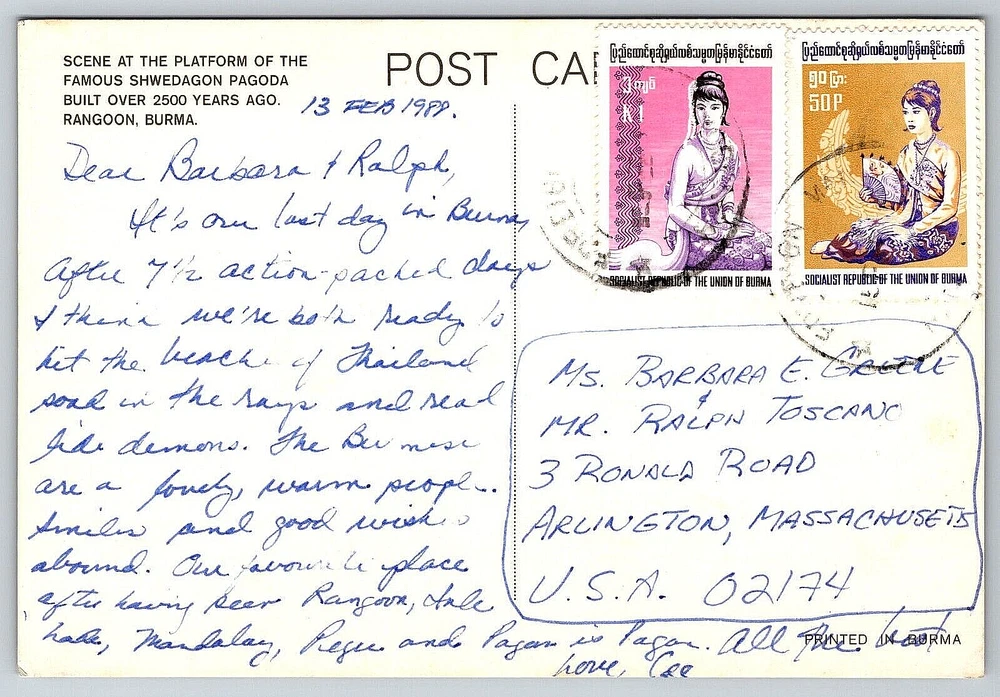 SCENE AT THE PLATFORM OF THE
FAMOUS SHWEDAGON PAGODA
BUILT OVER 2500 YEARS AGO.
RANGOON, BURMA.
POST CAR
13 FEB 1988.
Dear Barbara & Ralph,
It's our last day in Burma,
After 7½ action-packed days
I think we're both ready to
hit the beaches of Thailand
soak in the rays and read
like demons. The Burmese
are a lovely, warm people.
Smiles and good wishes
abound. Our favourite place
after having seen Rangoon, Inle
Lake, Mandalay, Pegu and Pagan is Pagan. All the best
Love,
ပြည်ထောင်စုဆိုရှယ်လစ်သမ္မတမြန်မာနိုင်ငံတော်
၁ကျပ်
K1
SOCIALIST REPUBLIC OF THE UNION OF BURMA
ပြည်ထောင်စုဆိုရှယ်လစ်သမ္မတမြန်မာနိုင်ငံတော်
၅၀ပြား
50P
SOCIALIST REPUBLIC OF THE UNION OF BURMA
Ms. BARBARA E. GREENE
&
MR. RALPH TOSCANO
3 RONALD ROAD
ARLINGTON, MASSACHUSETS
U.S.A. 02174
PRINTED IN BURMA